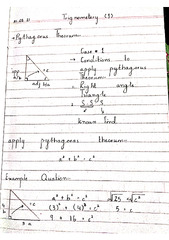 Trigonometry (9)
→ Pythagoras Theorem:
Case # 1
→ Conditions to
apply pythagoras
theorem:
→ Right angle
Triangle
→ S.S.S
known find
apply pythagoras theorem:
a² + b² = c²
Example Question:
a² + b² = c²
(3)² + (4)² = c²
9 + 16 = c²
√25 = √c²
5 = c